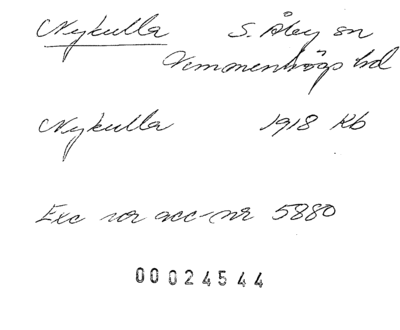 Nykulla S. Åby sn
Vemmenhögs hd
Nykulla 1918 Kb
Exc ror acc-nr 5880
00024544